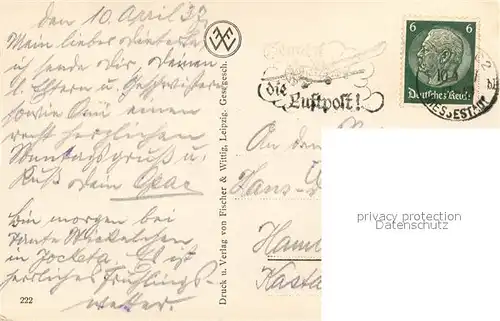 den 10. April 37.
Mein lieber Dieterle
ich sende Dir, Deinen
l. Eltern u. Geschwistern
sowie Omi einen
recht herzlichen
Sonntagsgruß u.
Kuß Dein
Bin morgen bei
Tante
in Jocketa. Es ist
herrliches Frühlings-
wetter.
222
Druck u. Verlag von Fischer & Wittig, Leipzig. Gesegesch.
die
Luftpost!
6 6
Deutsches Reich
MESSESTADT
An den
Hans-
Hann
Kasta
privacy protection
Datenschutz